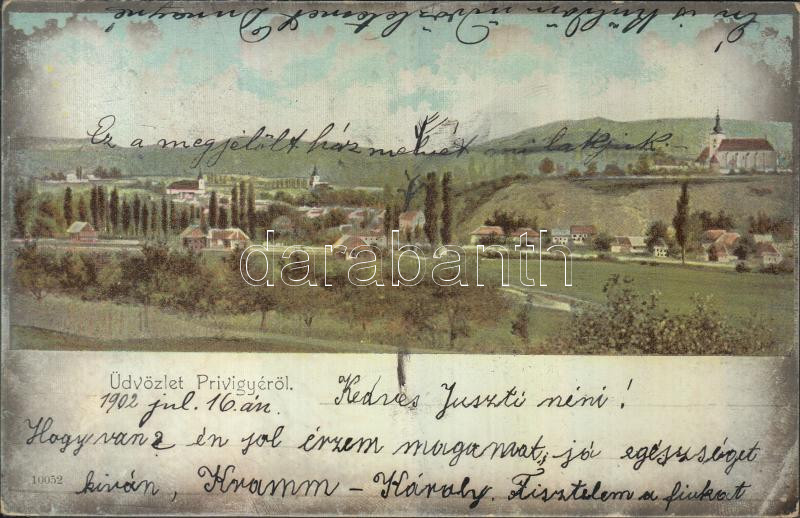 Én is
Ez a megjelölt ház melyet mi lakjuk.
darabanth
Üdvözlet Privigyéről.
1902 jul. 16.án. Kedves Juszti néni!
Hogy van? én jol érzem magamat, jó egészséget
10052 kiván, Kramm-Károly. Tisztelem a fiukat